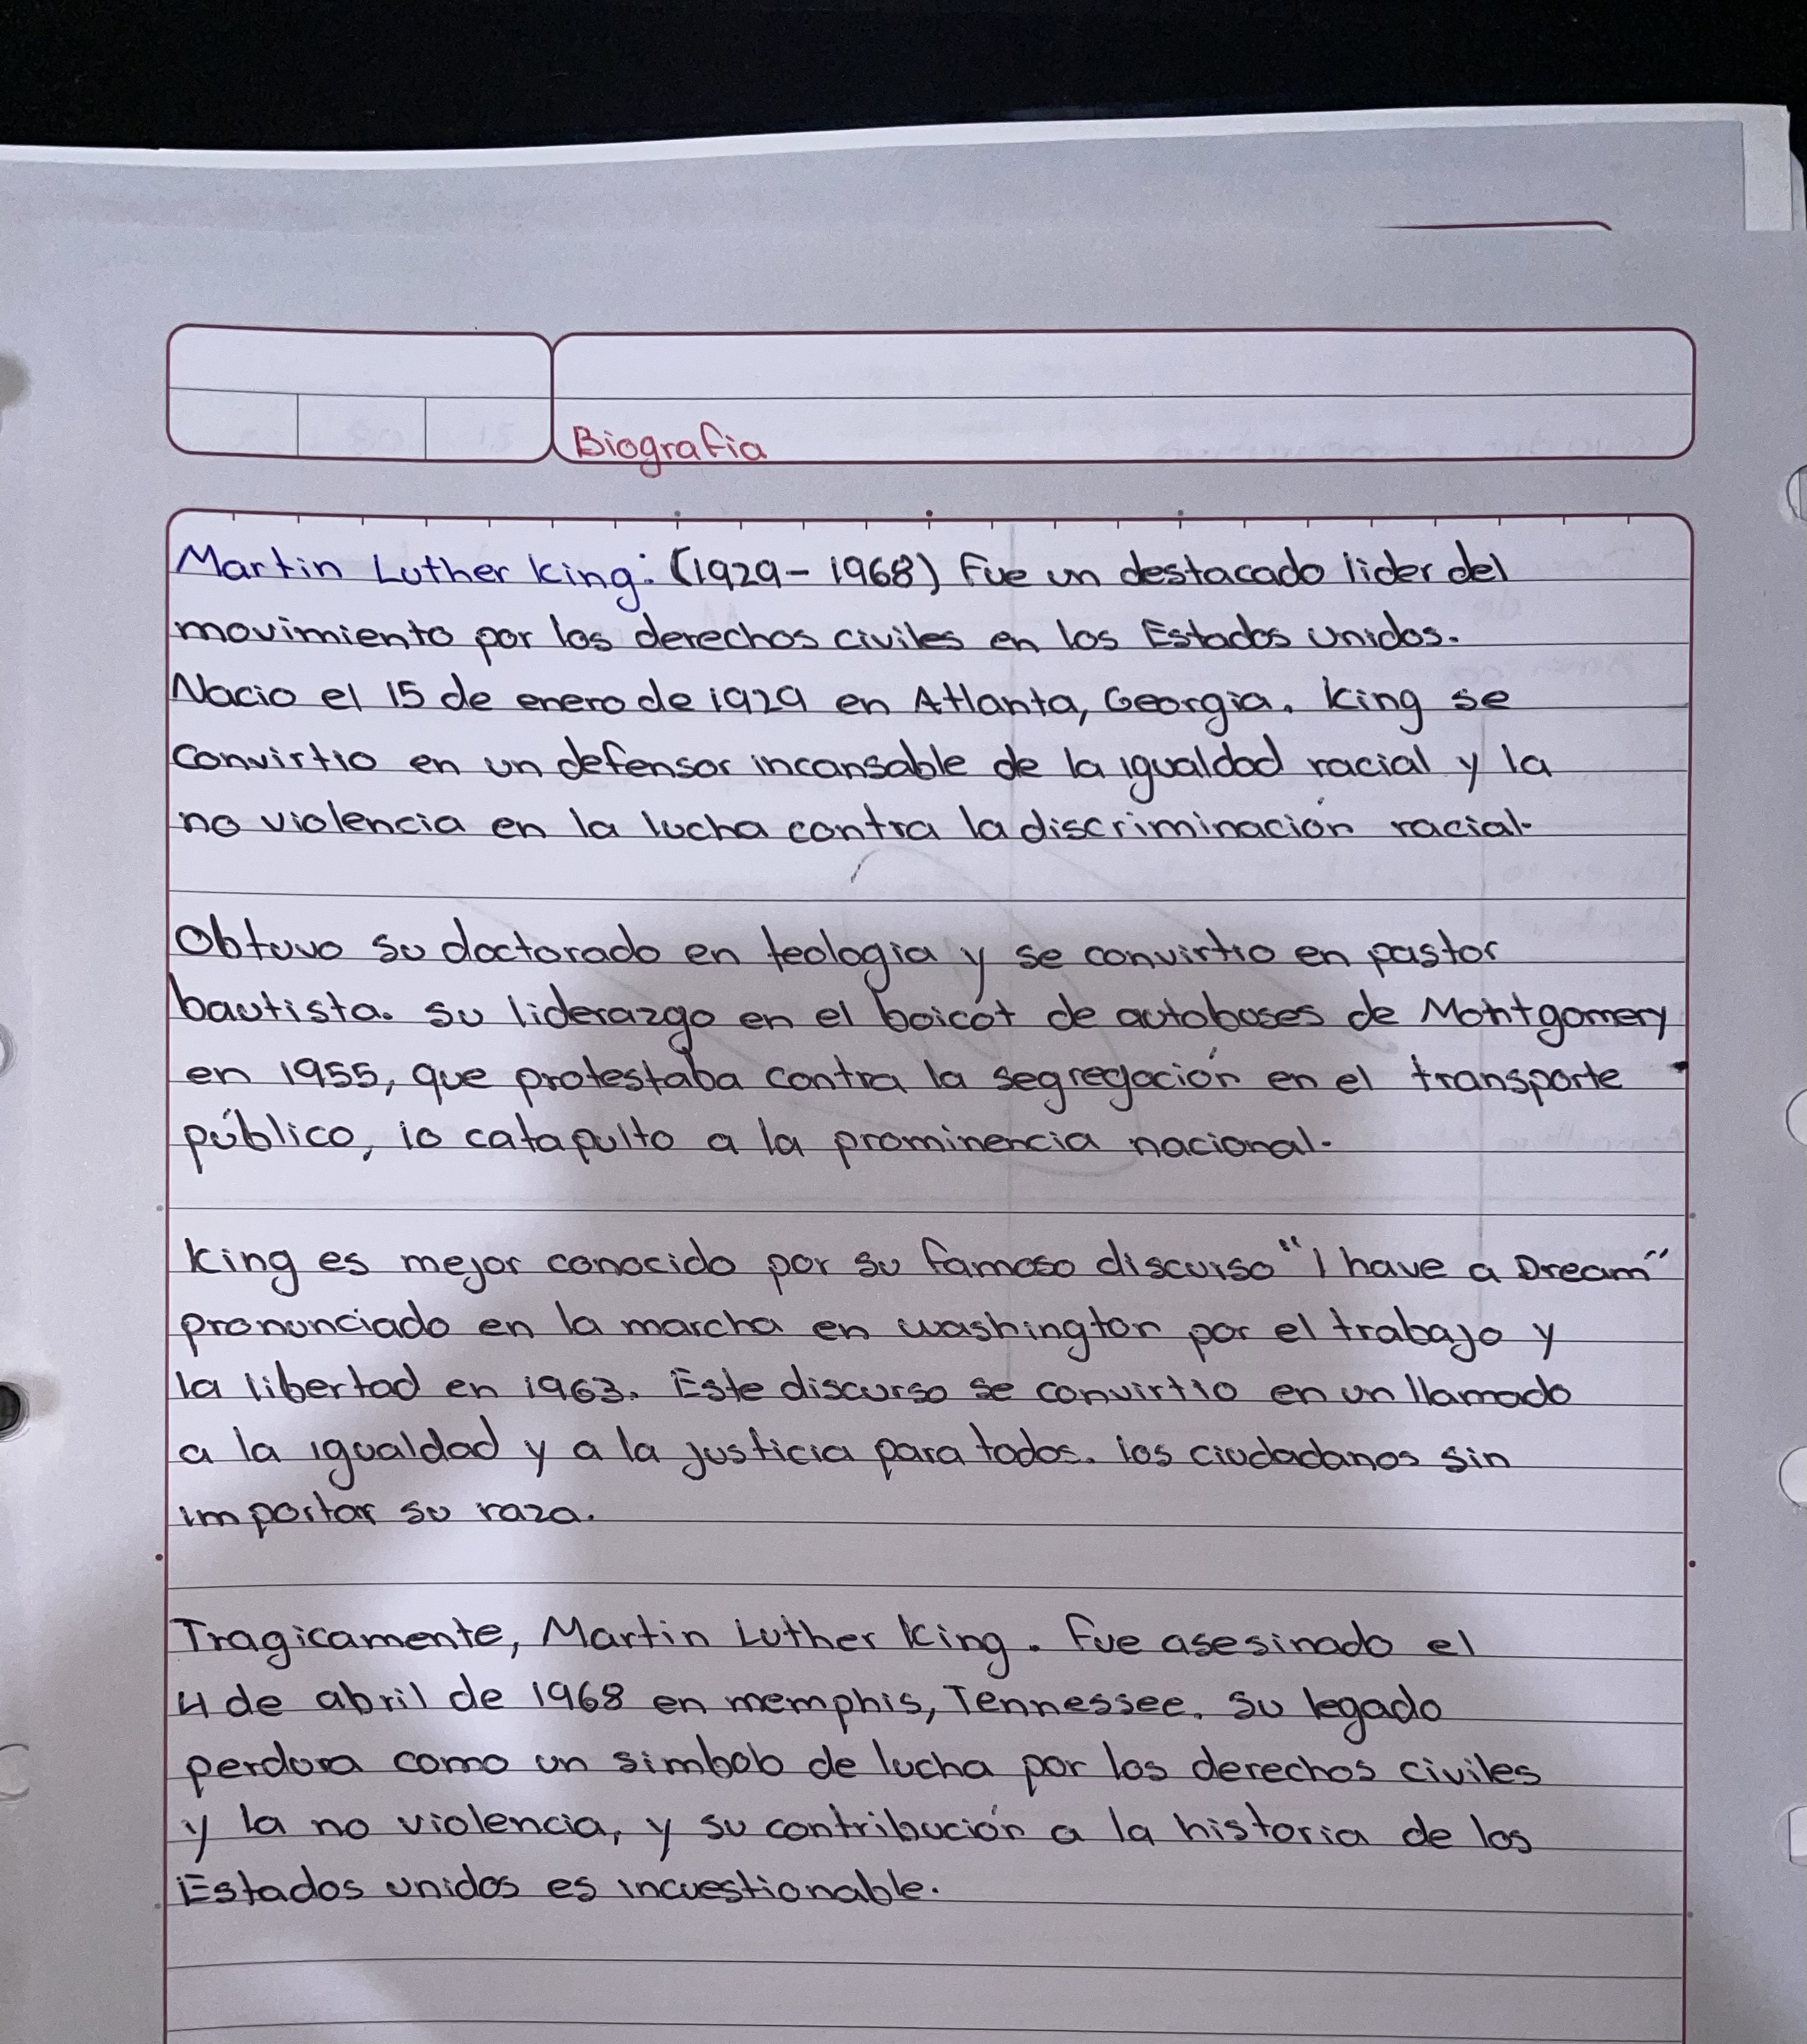 Biografia
Martin Luther King: (1929-1968) Fue un destacado lider del
movimiento por los derechos civiles en los Estados Unidos.
Nacio el 15 de enero de 1929 en Atlanta, Georgia. King se
convirtio en un defensor incansable de la igualdad racial y la
no violencia en la lucha contra la discriminación racial.
Obtuvo su doctorado en teologia y se convirtio en pastor
bautista. su liderazgo en el boicot de autobuses de Montgomery
en 1955, que protestaba contra la segregación en el transporte
público, lo catapulto a la prominencia nacional.
King es mejor conocido por su famoso discurso "I have a Dream"
pronunciado en la marcha en washington por el trabajo y
la libertad en 1963. Este discurso se convirtio en un llamado
a la igualdad y a la justicia para todos. los ciudadanos sin
importar su raza.
Tragicamente, Martin Luther King. fue asesinado el
4 de abril de 1968 en memphis, Tennessee. su legado
perdura como un simbolo de lucha por los derechos civiles
y la no violencia, y su contribución a la historia de los
Estados unidos es incuestionable.